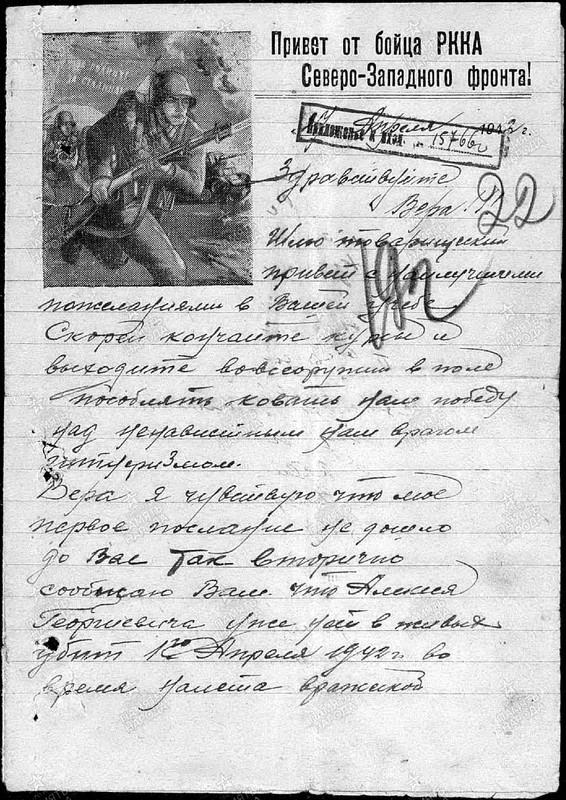 Привет от бойца РККА
Северо-Западного фронта!
Апреля 1942 г.
Приложенье к вход. № 15766с
Здравствуйте
Вера. П.
22
Шлю товарищеский
привет с наилучшими
пожеланиями в Вашей учебе
Скорей кончайте курсы и
выходите вовсеоружии в поле
пособлять ковать нам победу
над ненавистным нам врагом
гитлеризмом.
Вера я чувствую что мое
первое послание не дошло
до Вас Так вторично
сообщаю Вам что Алексея
Георгиевича уже нет в живых
убит Апреля 1942 г. во
время налета вражеской